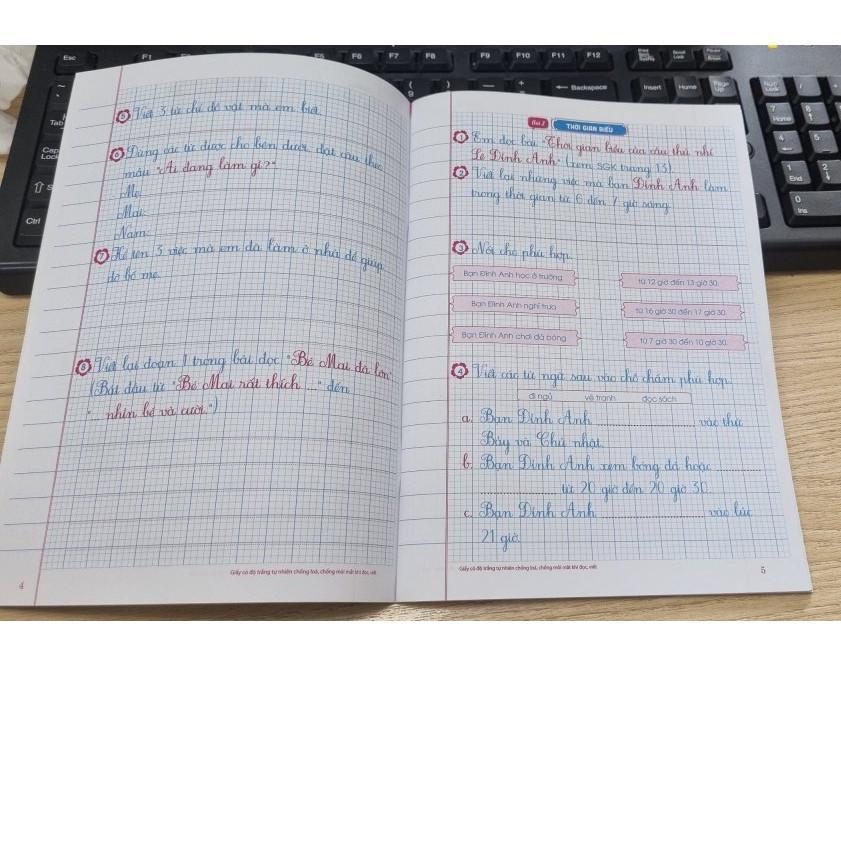 5 Viết 3 từ chỉ đồ vật mà em biết.
6 Dùng các từ được cho bên dưới, đặt câu theo
mẫu "Ai đang làm gì?"
Mẹ:
Mai:
Nam:
7 Kể tên 3 việc mà em đã làm ở nhà để giúp
đỡ bố mẹ.
8 Viết lại đoạn 1 trong bài đọc "Bé Mai đã lớn"
(Bắt đầu từ "Bé Mai rất thích ..." đến
"... nhìn bé và cười.")
Giấy có độ trắng tự nhiên chống loá, chống mỏi mắt khi đọc, viết
4
Bài 2 THỜI GIAN BIỂU
1 Em đọc bài "Thời gian biểu của cầu thủ nhí
Lê Đình Anh" (xem SGK trang 13)
2 Viết lại những việc mà bạn Đình Anh làm
trong thời gian từ 6 đến 7 giờ sáng.
3 Nối cho phù hợp.
Bạn Đình Anh học ở trường từ 12 giờ đến 13 giờ 30.
Bạn Đình Anh nghỉ trưa từ 16 giờ 30 đến 17 giờ 30.
Bạn Đình Anh chơi đá bóng từ 7 giờ 30 đến 10 giờ 30.
4 Viết các từ ngữ sau vào chỗ chấm phù hợp.
đi ngủ vẽ tranh đọc sách
a. Bạn Đình Anh ........ vào thứ
Bảy và Chủ nhật.
b. Bạn Đình Anh xem bóng đá hoặc ........
........ từ 20 giờ đến 20 giờ 30.
c. Bạn Đình Anh ........ vào lúc
21 giờ.
Giấy có độ trắng tự nhiên chống loá, chống mỏi mắt khi đọc, viết
5